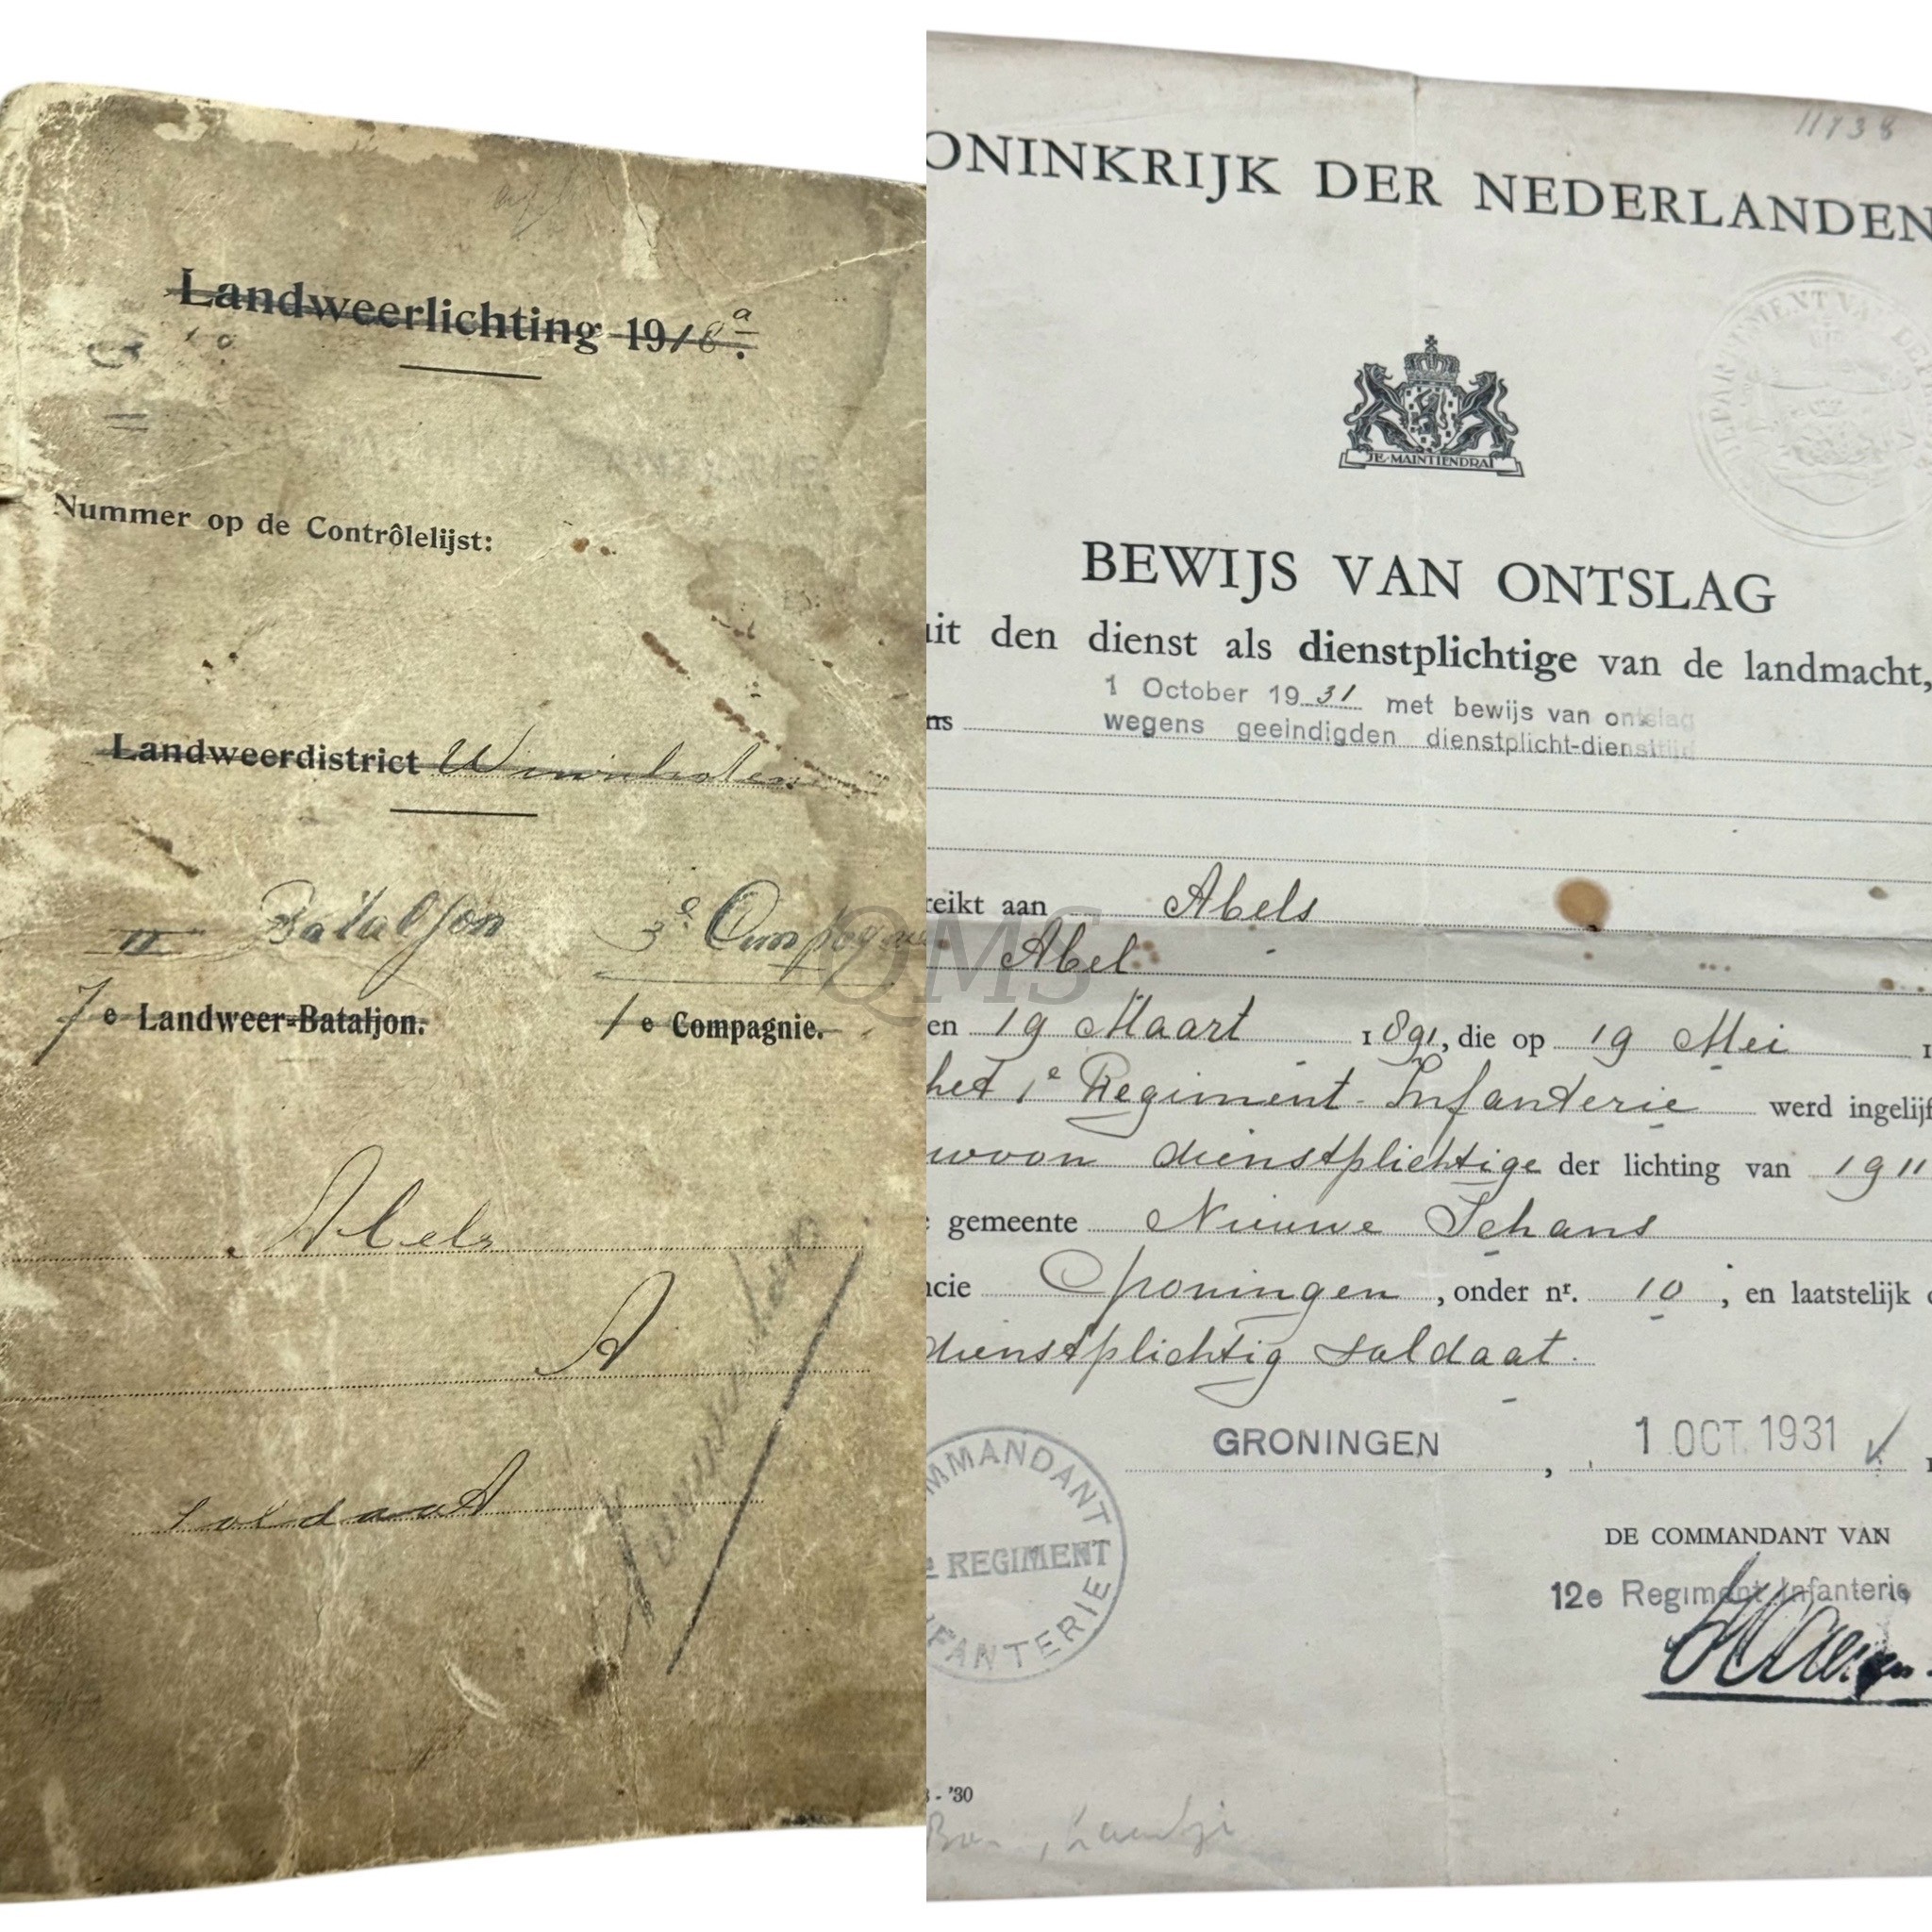 Landweerlichting 1918a.
Nummer op de Contrôlelijst:
Landweerdistrict Winschoten
II Bataljon 3e Compagnie
7e Landweer-Bataljon. 1e Compagnie.
Abels
A
soldaat
11738
ONINKRIJK DER NEDERLANDEN
JE MAINTIENDRAI
BEWIJS VAN ONTSLAG
uit den dienst als dienstplichtige van de landmacht,
1 October 1931 met bewijs van ontslag
ns wegens geeindigden dienstplicht-diensttijd
reikt aan Abels
Abel
QMS
en 19 Maart 1891, die op 19 Mei 1
het 1e Regiment Infanterie werd ingelijf
woon dienstplichtige der lichting van 1911
e gemeente Nieuwe Schans
ncie Groningen, onder nr. 10, en laatstelijk d
dienstplichtig soldaat.
GRONINGEN, 1 OCT. 1931
MMANDANT
REGIMENT
FANTERIE
DE COMMANDANT VAN
12e Regiment Infanterie
- '30